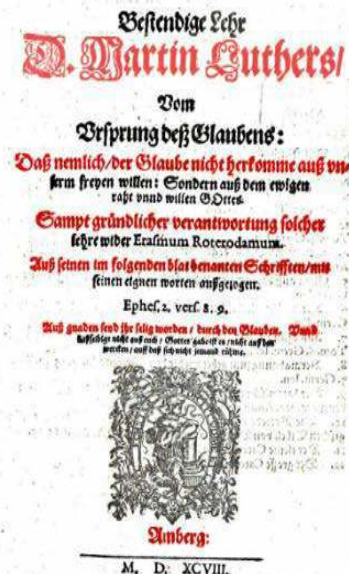 Bestendige Lehr
D. Martin Luthers/
Vom
Vrsprung deß Glaubens:
Daß nemlich/der Glaube nicht herkomme auß vn-
serm freyen willen: Sondern auß dem ewigen
raht vnnd willen GOttes.
Sampt gründlicher verantwortung solcher
lehre wider Erasmum Roterodamum.
Auß seinen im folgenden blat benanten Schrifften/mit
seinen eignen worten außgezogen.
Ephes. 2. vers. 8. 9.
Auß gnaden seyd ihr selig worden / durch den Glauben. Vnnd
dasselbige nicht auß euch / Gottes gabe ist es / nicht auß den
wercken / auff daß sich nicht jemand rühme.
Amberg:
M. D. XCVIII.